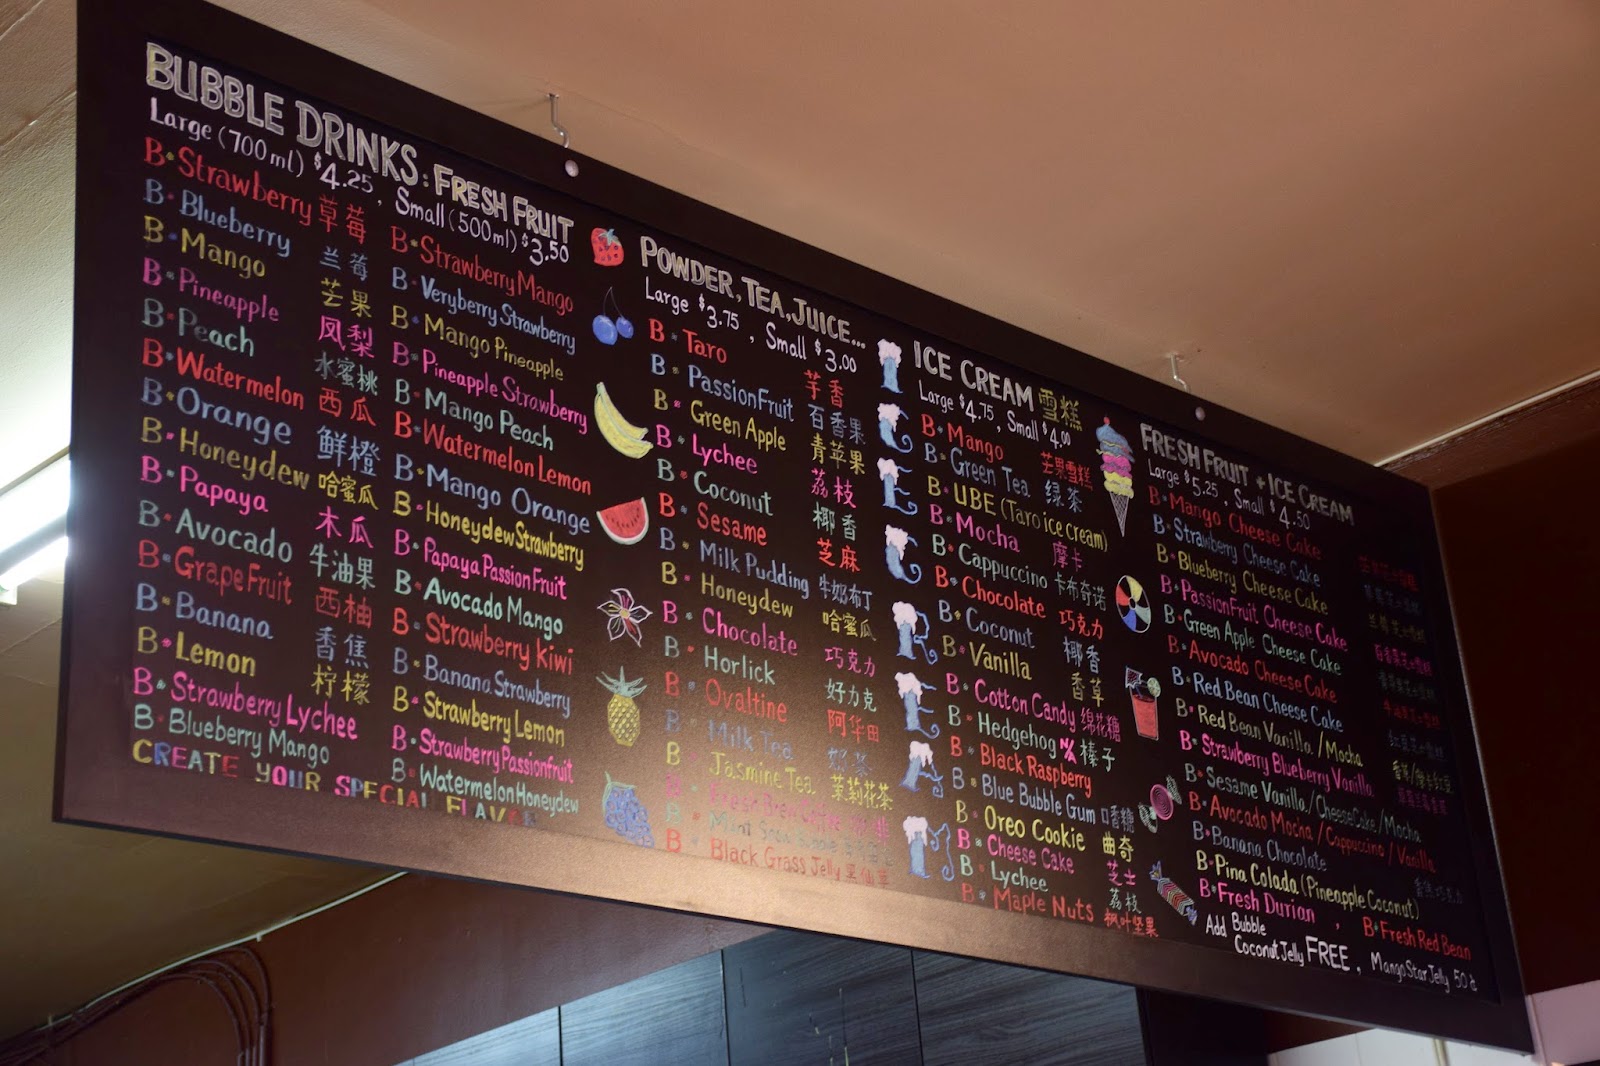 BUBBLE DRINKS: FRESH FRUIT
Large (700ml) $4.25, Small (500ml) $3.50
B•Strawberry 草莓
B•Blueberry 兰莓
B•Mango 芒果
B•Pineapple 凤梨
B•Peach 水蜜桃
B•Watermelon 西瓜
B•Orange 鲜橙
B•Honeydew 哈蜜瓜
B•Papaya 木瓜
B•Avocado 牛油果
B•GrapeFruit 西柚
B•Banana 香焦
B•Lemon 柠檬
B•Strawberry Lychee
B•Blueberry Mango
CREATE YOUR SPECIAL FLAVOR
B•Strawberry Mango
B•Veryberry Strawberry
B•Mango Pineapple
B•Pineapple Strawberry
B•Mango Peach
B•Watermelon Lemon
B•Mango Orange
B•Honeydew Strawberry
B•Papaya PassionFruit
B•Avocado Mango
B•Strawberry kiwi
B•Banana Strawberry
B•Strawberry Lemon
B•Strawberry Passionfruit
B•Watermelon Honeydew
POWDER, TEA, JUICE...
Large $3.75, Small $3.00
B•Taro 芋香
B•PassionFruit 百香果
B•Green Apple 青苹果
B•Lychee 荔枝
B•Coconut 椰香
B•Sesame 芝麻
B•Milk Pudding 牛奶布丁
B•Honeydew 哈蜜瓜
B•Chocolate 巧克力
B•Horlick 好力克
B•Ovaltine 阿华田
B•Milk Tea 奶茶
B•Jasmine Tea 茉莉花茶
B•Fresh Brew Coffee
B•Mint Snow Bubble
B•Black Grass Jelly 黑仙草
ICE CREAM 雪糕
Large $4.75, Small $4.00
B•Mango 芒果雪糕
B•Green Tea 绿茶
B•UBE (Taro ice cream)
B•Mocha 摩卡
B•Cappuccino 卡布奇诺
B•Chocolate 巧克力
B•Coconut 椰香
B•Vanilla 香草
B•Cotton Candy 绵花糖
B•Hedgehog 榛子
B•Black Raspberry
B•Blue Bubble Gum 口香糖
B•Oreo Cookie 曲奇
B•Cheese Cake 芝士
B•Lychee 荔枝
B•Maple Nuts 枫叶坚果
FRESH FRUIT + ICE CREAM
Large $5.25, Small $4.50
B•Mango Cheese Cake
B•Strawberry Cheese Cake
B•Blueberry Cheese Cake
B•PassionFruit Cheese Cake
B•Green Apple Cheese Cake
B•Avocado Cheese Cake
B•Red Bean Cheese Cake
B•Red Bean Vanilla /Mocha
B•Strawberry Blueberry Vanilla
B•Sesame Vanilla/CheeseCake/Mocha
B•Avocado Mocha/Cappuccino/Vanilla
B•Banana Chocolate
B•Pina Colada (Pineapple Coconut)
B•Fresh Durian , B•Fresh Red Bean
Add Bubble
Coconut Jelly FREE, Mango Star Jelly 50¢